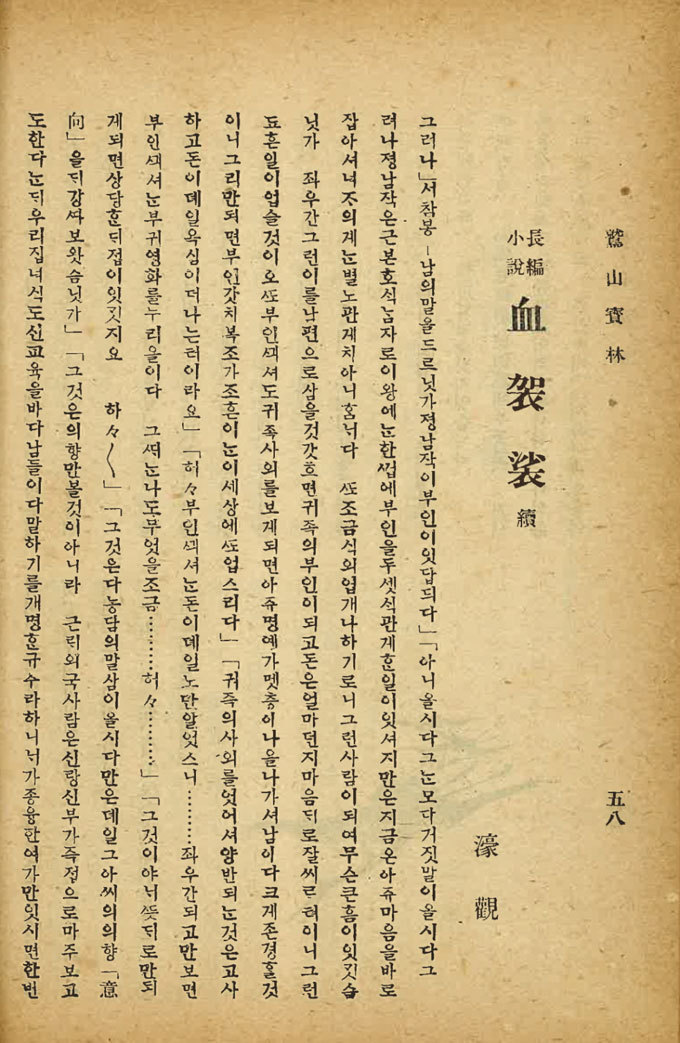 鷲山寶林
五八
長編小說 血袈裟 續
濠觀
그러나」서참봉ㅣ남의말을드르닛가졍남작이부인이잇답듸다」「아니올시다그ᄂᆞᆫ모다거짓말이올시다그
려나졍남작은근본호ᄉᆡᆨ남자로이왕에ᄂᆞᆫ한ᄭᅥᆸ에부인을두셋식관계ᄒᆞᆫ일이잇셔지만은지금은아쥬마음을바로
잡아셔녀ᄌᆞ의게ᄂᆞᆫ별노관게치아니ᄒᆞᆷ니다 ᄯᅩ조금식외업개나하기로니그런사람이되여무슨큰흠이잇깃슴
닛가 좌우간그런이를남편으로삼을것갓흐면귀족의부인이되고돈은얼마던지마음ᄃᆡ로잘쓰르혀이니그런
됴흔일이업슬것이오ᄯᅩ부인ᄭᅴ셔도귀족사회를보게되면아쥬명예가몟층이나을나가셔남이다크게존경ᄒᆞᆯ것
이니그리만되면부인갓치복조가조흔이ᄂᆞᆫ이세상에ᄯᅩ업스리다」「귀족의사외를엇어셔양반되ᄂᆞᆫ것은고사
하고돈이뎨일욕심이더나는러이라요」「허々부인ᄭᅴ셔ᄂᆞᆫ돈이뎨일노만알엇스니………좌우간되고만보면
부인ᄭᅴ셔ᄂᆞᆫ부귀영화를누리을이다 그ᄯᅢᄂᆞᆫ나도무엇을조금………허々………」「그것이야너ᄯᅳᆺᄃᆡ로만되
게되면상당ᄒᆞᆫᄃᆡ졉이잇깃지요 하々〱」「그것은다농담의말삼이올시다만은뎨일그아씨의의향「意
向」을ᄃᆡ강ᄯᅡ보왓슴닛가」「그것은의향만볼것이아니라 근ᄅᆡ외국사람은신랑신부가즉졉으로마주보고
도한다ᄂᆞᆫᄃᆡ우리집녀식도신교육을바다남들이다말하기를개명ᄒᆞᆫ규수라하니너가종융한여가만잇시면한번